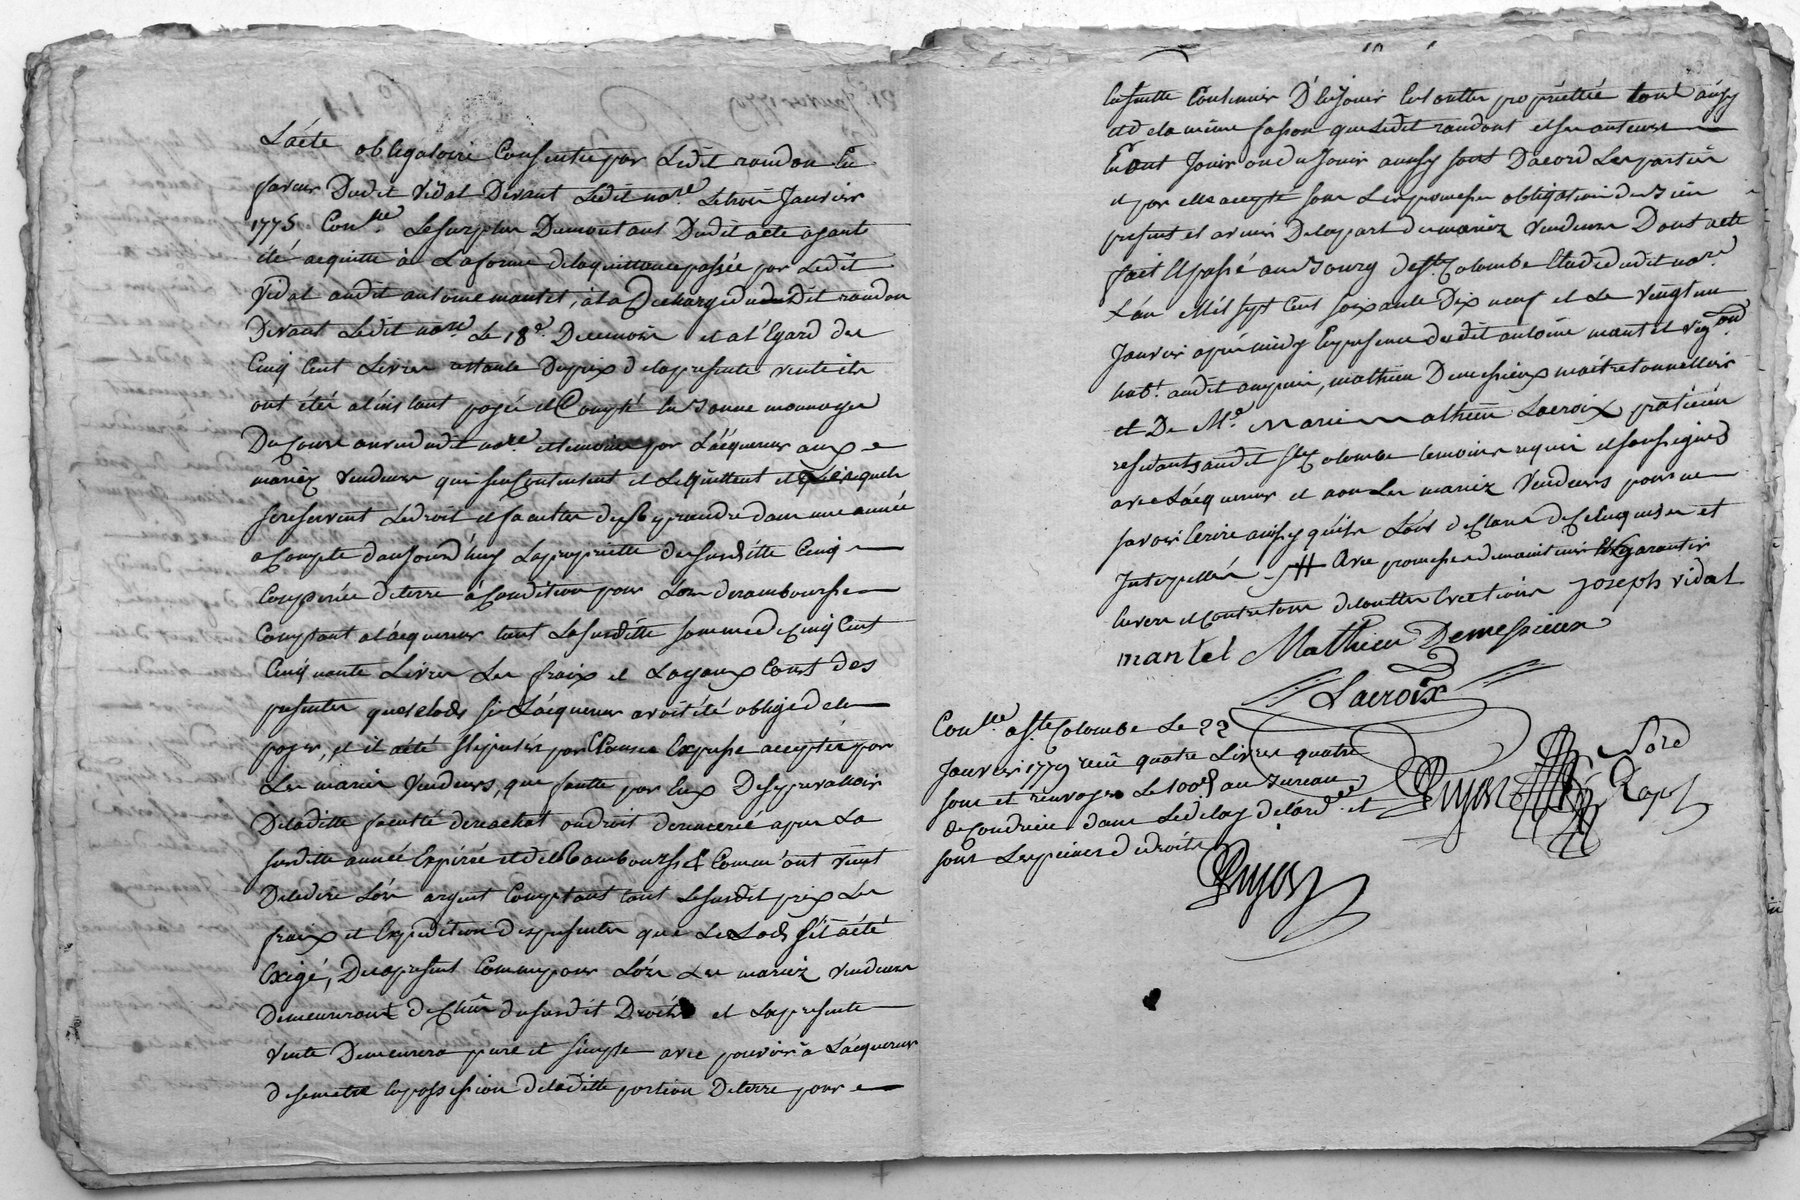 L'acte obligatoire Consentie par Ledit randon En
faveur Dudit Vidal Devant Ledit no.re Le trois Janvier
1775 Con.llé Le surplus Du montant Dudit acte ayant
été acquitté à La forme de la quittance passée par Ledit
Vidal audit antoine mantel, à la Decharge dudit randon
Devant Ledit no.re Le 18e Du mois et a l'Egard des
Cinq Cent Livres restante Du prix de la presente vente ils
ont étés a l'instant payés et Compté En Bonne monnoye
Du Cours au vu dudit no.re et temoins par L'acquereur aux
mariéz Vendeurs qui s'en Contentent et Le quittent et Lesquels
se reservent Le droit et faculté de Reprendre dans une année
a Compter d'aujourd'huy La propriette de susditte Cinq
Couperées de terre à Condition pour Lors de rambourser
Comptant a l'acquereur tant La susditte somme de Cinq Cent
Cinquante Livres Les fraix et Loyaux Couts des
presentes que les lods si L'acquereur avoit été obligé de les
payer, et il a été stipulés par Clause Expresse acceptés par
Les mariés Vendeurs, que faute par Eux De se prevalloir
De la ditte faculté de rachat ou droit de remeré apres La
susditte année Expirée et de Rambourser Comm'ont vient
De le dire Lors argent Comptant tant Le susdit prix Les
fraix et Expedition des presentes que Les Lods s'il a été
Exigé, Des a present Comme pour Lors Les mariéz Vendeurs
Demeureront dechus du susdit Droit et La presente
Vente Demeurera pure et simple avec pouvoir à L'acquereur
de se mettre En possession de la ditte portion De terre pour
En suitte Continuer D'En Jouir En toutte propriettée tout ainsy
et de la même fasson que Ledit randont et ses auteurs
En ont Joui ou du Jouir ainsy sont D'acord Les parties
et par elles accepté sous Les promesses obligations de Biens
presents et avenir De la part des mariéz Vendeurs Dont acte
fait Et passé au Bourg de Ste Colombe Etude dudit no.re
L'an Mil sept Cent soixante Dix neuf et Le Vingt un
Janvier après midy En presence dudit antoine mantel vigneron
hab.t audit ampuis, mathieu Demessieux maitre tonnellier
et De Me. Marie mathieu Lacroix praticien
residants audit Ste Colombe temoins requis et soussignés
avec L'acquereur et non Les mariéz Vendeurs pour ne
savoir Ecrire ainsy qu'ils L'ont declaré de Ce Enquis et
Interpellés. // Avec promesse de maintenir Et garantir
Envers et Contre tous de touttes Evictions joseph vidal
mantel Mathieu Demessieux
Lacroix
Con.llé a Ste Colombe Le 22
Janvier 1779 reçû quatre Livres quatre
sous et renvoyés Le 100e au Bureau
de Condrieu dans Le delay de l'ord.ce et
sous Les peines de droits